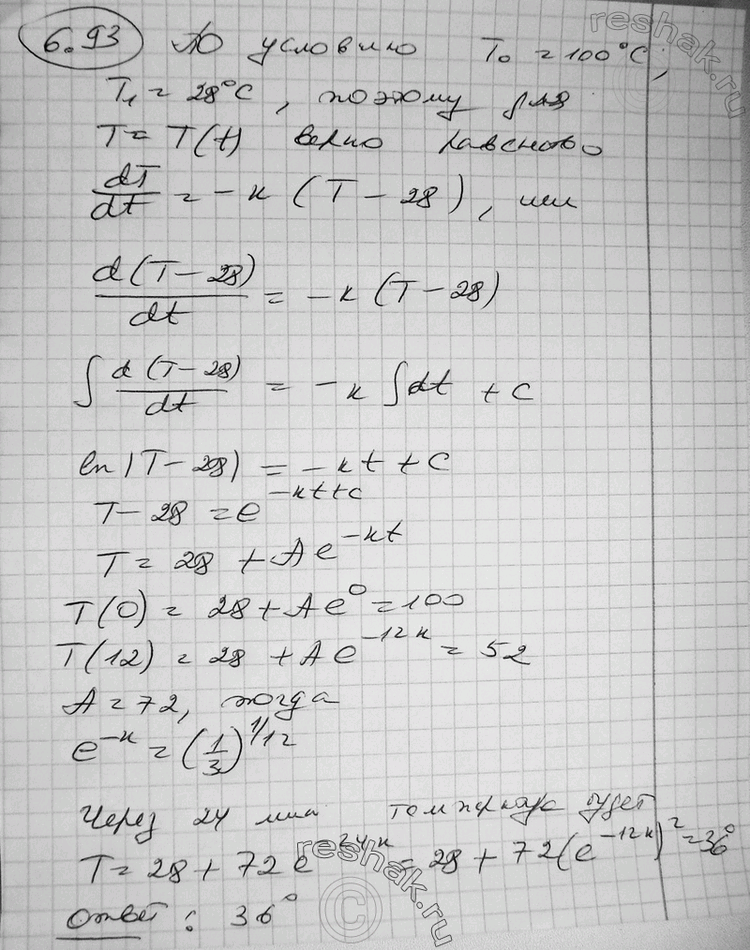 6.93 По условию T₀ = 100°C,
T₁ = 28°C, поэтому для
T = T(t) верно равенство
dT/dt = -к (T - 28), или
d(T - 28)/dt = -к (T - 28)
∫ d(T - 28)/dt = -к ∫dt + C
ln|T - 28| = -кt + C
T - 28 = e^(-кt+C)
T = 28 + Ae^(-кt)
T(0) = 28 + Ae^0 = 100
T(12) = 28 + Ae^(-12к) = 52
A = 72, тогда
e^(-к) = (1/3)^(1/12)
Через 24 мин температура будет
T = 28 + 72e^(-24к) = 28 + 72(e^(-12к))² = 36°
Ответ: 36°
reshak.ru
reshak.ru
©